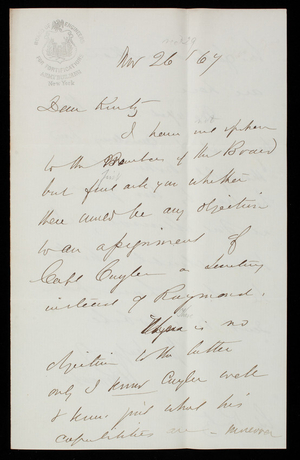 New York
Nov 26 '67
Dear Kurtz
I have not spoken
to the Members of the Board
but first ask you whether
there would be any objection
to an assignment of
Capt Cuyler as Secretary
instead of Raymond.
There is no
objection to the latter
only I know Cuyler well
& know just what his
capabilities are - moreover